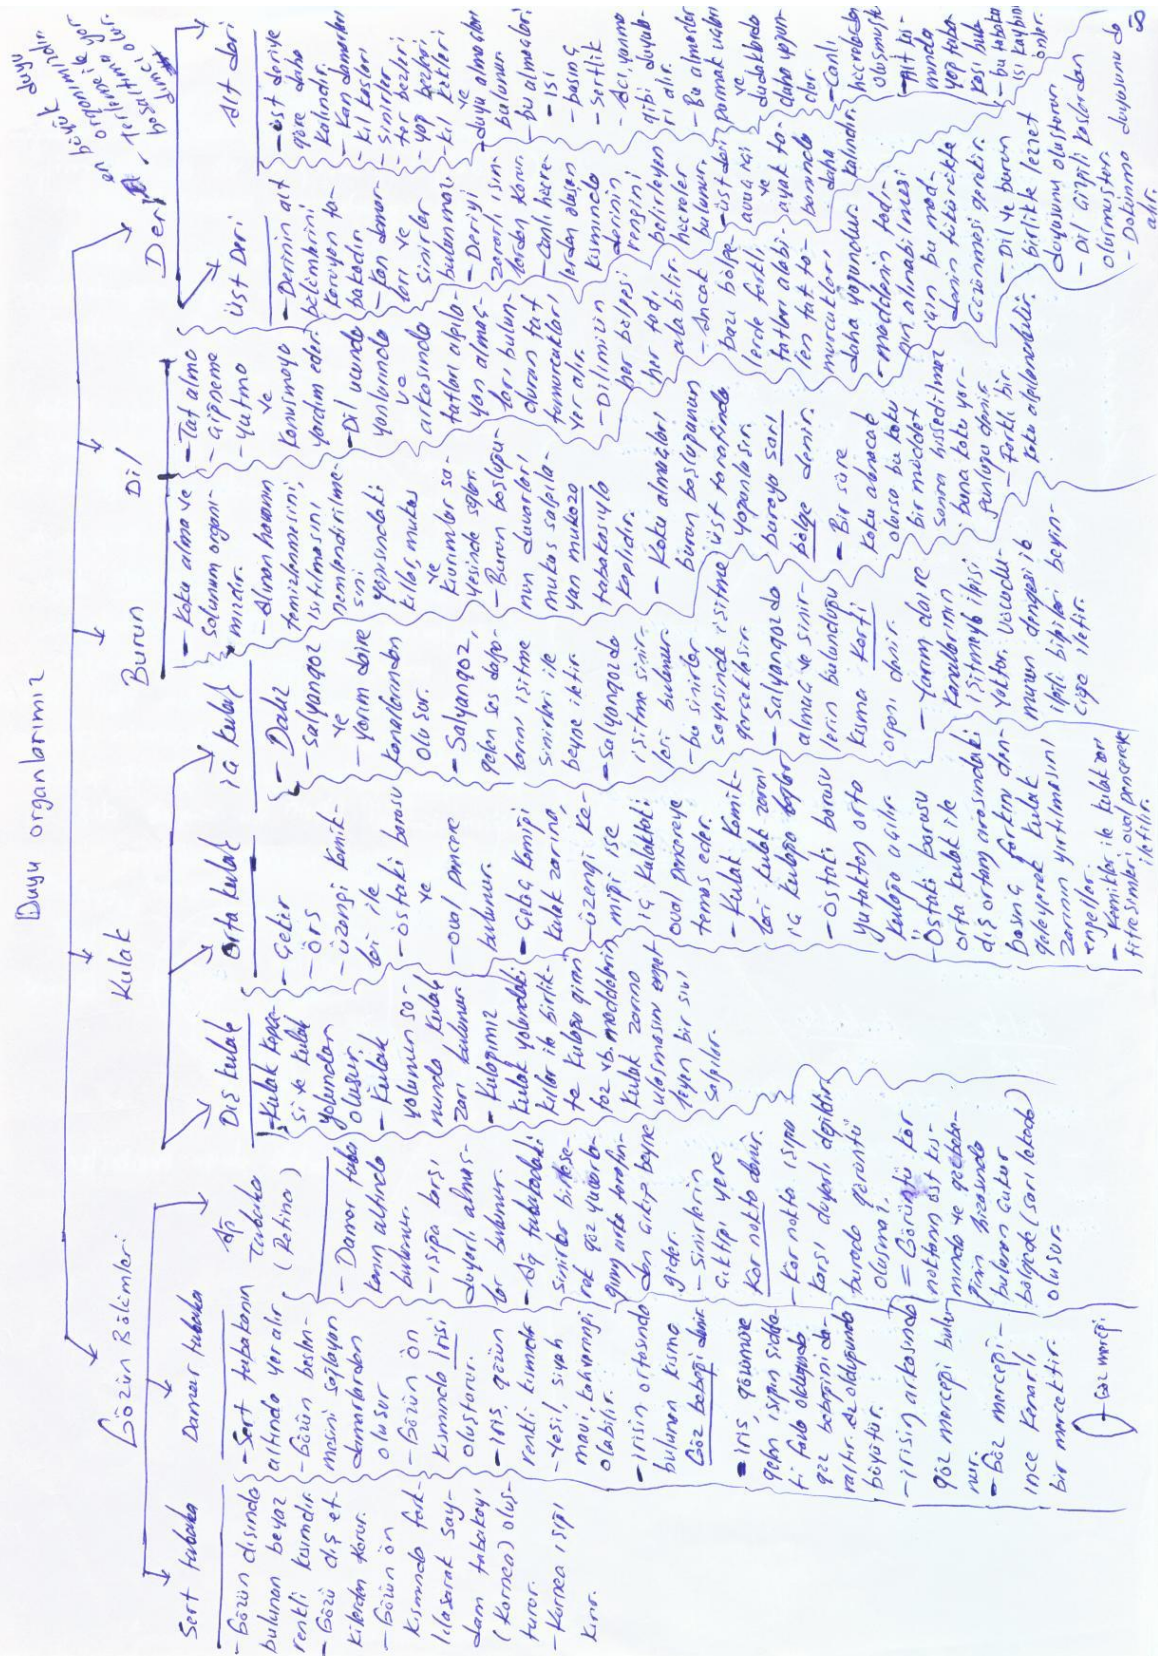 Duyu organlarımız
Gözün Bölümleri
Sert tabaka
- Gözün dışında
bulunan beyaz
renkli kısımdır.
- Gözü dış et-
kilerden korur.
- Gözün ön
kısmında fark-
lılaşarak say-
dam tabakayı
(Kornea) oluş-
turur.
- Kornea ışığı
kırar.
Damar tabaka
- Sert tabakanın
altında yer alır
- Gözün beslen-
mesini sağlayan
damarlardan
oluşur
- Gözün ön
kısmında İrisi
oluşturur.
- iris, gözün
renkli kısmıdır
- Yeşil, siyah
mavi, kahvarengi
olabilir.
- irisin ortasında
bulunan kısma
Göz bebeği denir.
- iris, gözümüze
gelen ışığın şidde-
ti fazla olduğunda
göz bebeğini da-
raltır. Az olduğunda
büyütür.
- irisin arkasında
göz merceği bulu-
nur.
- Göz merceği-
ince kenarlı
bir mercektir.
- Göz merceği
Ağ
Tabaka
(Retina)
- Damar taba
kanın altında
bulunur.
- ışığa karşı
duyarlı almaç-
lar bulunur.
- Ağ tabakadaki
sinirler birleşe-
rek göz yuvarla-
ğının arka tarafın-
dan çıkıp beyne
gider.
- Sinirlerin
çıktığı yere
Kör nokta denir.
- Kör nokta ışığa
karşı duyarlı değildir
burada görüntü
oluşmaz.
= Görüntü kör
noktanın üst kıs-
mında ve gözbebe-
ğinin hizasında
bulunan çukur
bölgede (sarı lekede)
oluşur.
Kulak
Dış kulak
- Kulak kepçe-
si ve kulak
yolundan
oluşur.
- Kulak
yolunun so-
nunda kulak
zarı bulunur.
- Kulağımız
kulak yolundaki
kıllar ile birlik-
te kulağa giren
toz vb. maddelerin
kulak zarına
ulaşmasını engel
leyen bir sıvı
salgılar.
Orta kulak
- Çekiç
- örs
- üzengi kemik-
leri ile
- östaki borusu
ve
- oval pencere
bulunur.
- Çekiç kemiği
kulak zarına,
- üzengi ke-
miği ise
iç kulaktaki
oval pencereye
temas eder.
- Kulak kemik-
leri kulak zarını
iç kulağa bağlar
- Östaki borusu
yutaktan orta
kulağa açılır.
- Östaki borusu
orta kulak ile
dış ortam arasındaki
basınç farkını den-
geleyerek kulak
zarının yırtılmasını
engeller.
- Kemikler ile kulak zarı
titreşimleri oval pencereye
iletilir.
iç kulak
- Dalız
- Salyangoz
ve
- yarım daire
kanallarından
oluşur.
- Salyangoz,
gelen ses dalga-
larını işitme
sinirleri ile
beyne iletir.
- Salyangozda
işitme sinir-
leri bulunur.
- bu sinirler
sayesinde işitme
gerçekleşir.
- Salyangozda
almaç ve sinir-
lerin bulunduğu
kısma Korti
organı denir.
- Yarım daire
kanallarının
işitmeyle ilgisi
yoktur. Vücudu-
muzun dengesi ile
ilgili bilgileri beyin-
ciğe iletir.
Burun
- Koku alma ve
solunum organı-
mızdır.
- Alınan havanın
temizlenmesini,
ısıtılmasını
nemlendirilme-
sini
yapısındaki
kıllar, mukus
ve
kıvrımlar sa-
yesinde sağlar.
- Burun boşluğu-
nun duvarları
mukus salgıla-
yan mukoza
tabakasıyla
kaplıdır.
- Koku almaçları
burun boşluğunun
üst tarafında
yoğunlaşır.
buraya sarı
bölge denir.
- Bir süre
koku alınacak
olursa bu koku
bir müddet
sonra hissedilmez
buna koku yor-
gunluğu denir.
- Farklı bir
koku algılanabilir.
Dil
- Tat alma
- çiğneme
- yutma
ve
konuşmaya
yardım eder.
- Dil ucunda
yanlarında
ve
arkasında
tatları algıla-
yan almaç-
ları bulun-
duran tat
tomurcukları
yer alır.
- Dilimizin
her bölgesi
her tadı
alabilir.
- Ancak
bazı bölge-
lerde farklı
tatları alabi-
len tat to-
murcukları
daha yoğundur.
- maddenin tadı-
nın alınabilmesi
için bu mad-
denin tükürükte
çözünmesi gerekir.
- Dil ve burun
birlikte lezzet
duyusunu oluşturur.
- Dil çizgili kaslardan
oluşmuştur.
- Dokunma duyusunu da
alır.
Deri
en büyük duyu
organımızdır.
- Terleme ile
boşaltıma yar
dımcı olur.
üst Deri
- Derinin alt
bölümlerini
koruyan ta-
bakadır.
- Kan damar-
ları ve
sinirler
bulunmaz
- Deriyi
zararlı ışın-
lardan korur.
- Canlı hücre-
lerden oluşan
kısmında
derinin
rengini
belirleyen
hücreler
bulunur.
- üst deri
avuç içi
ve
ayak ta-
banında
daha
kalındır.
Alt deri
- üst deriye
göre daha
kalındır.
- Kan damarları
- kıl kasları
- sinirler
- ter bezleri
- yağ bezleri
- kıl kökleri
ve
- duyu almaçları
bulunur.
- bu almaçları
- ısı
- basınç
- sertlik
- Acı, yanma
gibi duyula-
rı alır.
- Bu almaçlar
parmak uçları
ve
dudaklarda
daha yoğun-
dur.
- Canlı
hücrelerden
oluşmuştur
- Alt kıs-
mında
yağ taba-
kası bulu
- bu tabaka
ısı kaybını
önler.